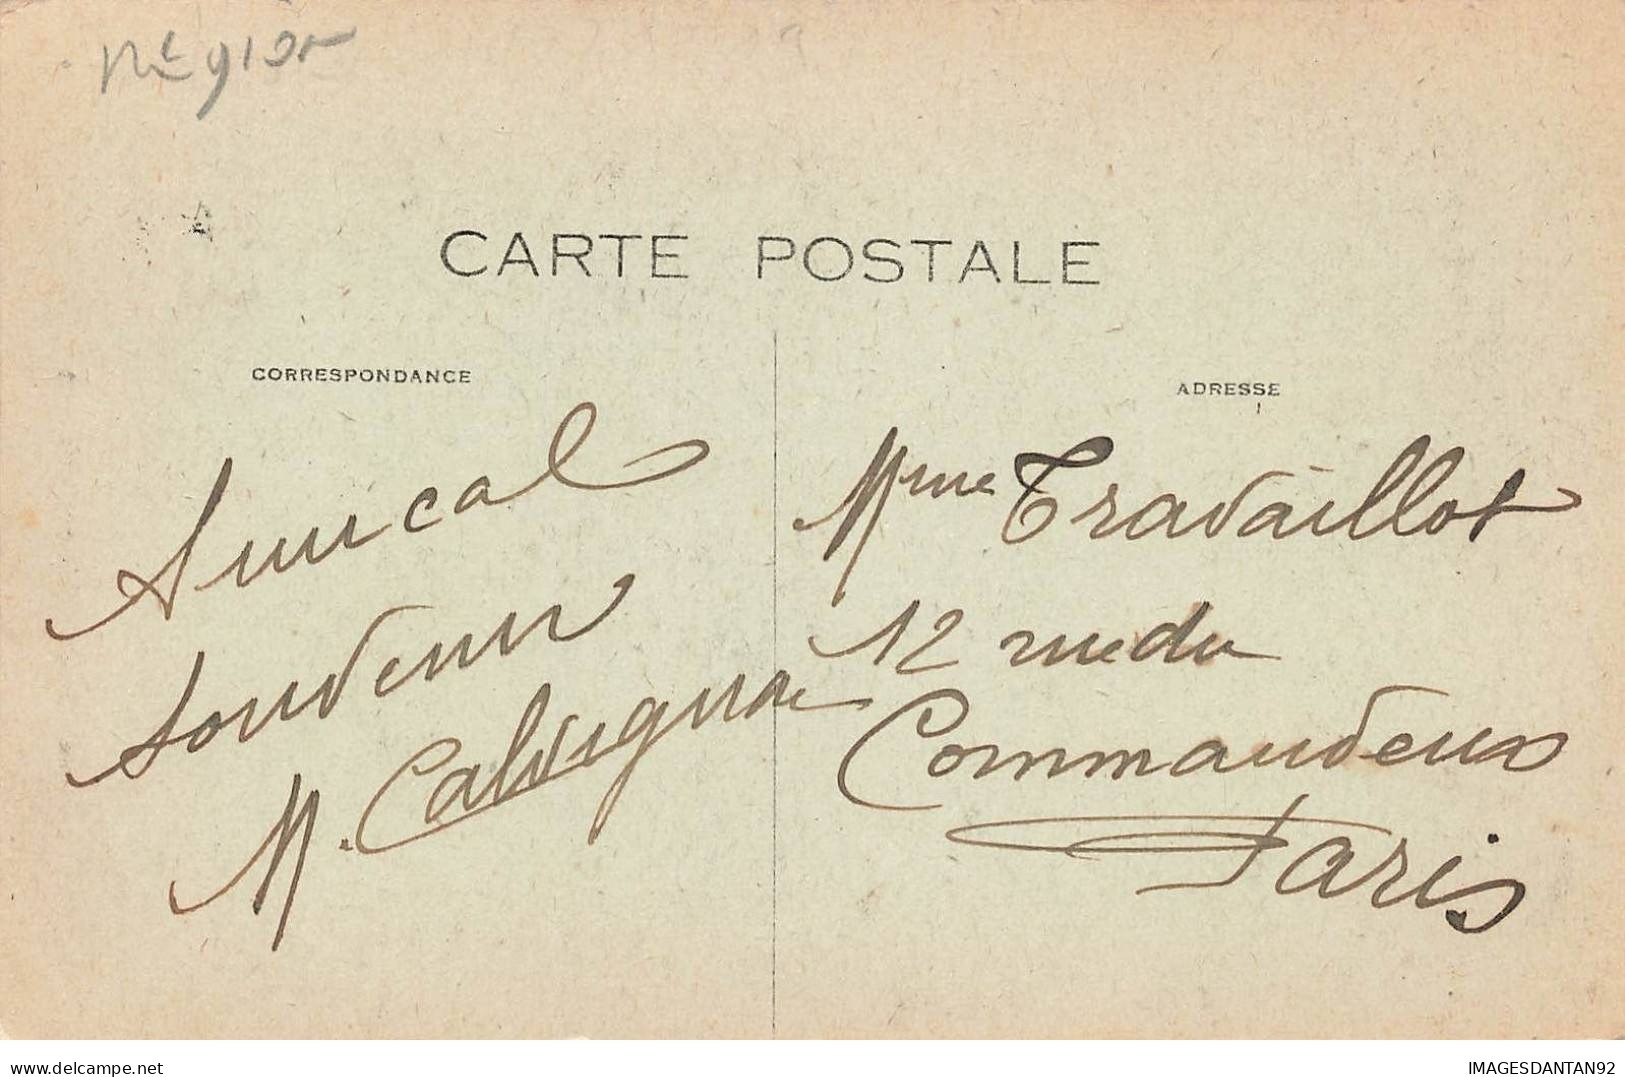 CARTE POSTALE
CORRESPONDANCE
ADRESSE
Amical
souvenir
M.
Mme Travaillot
12 rue du
Commandeur
Paris
delcampe.net
IMAGESDANTAN92